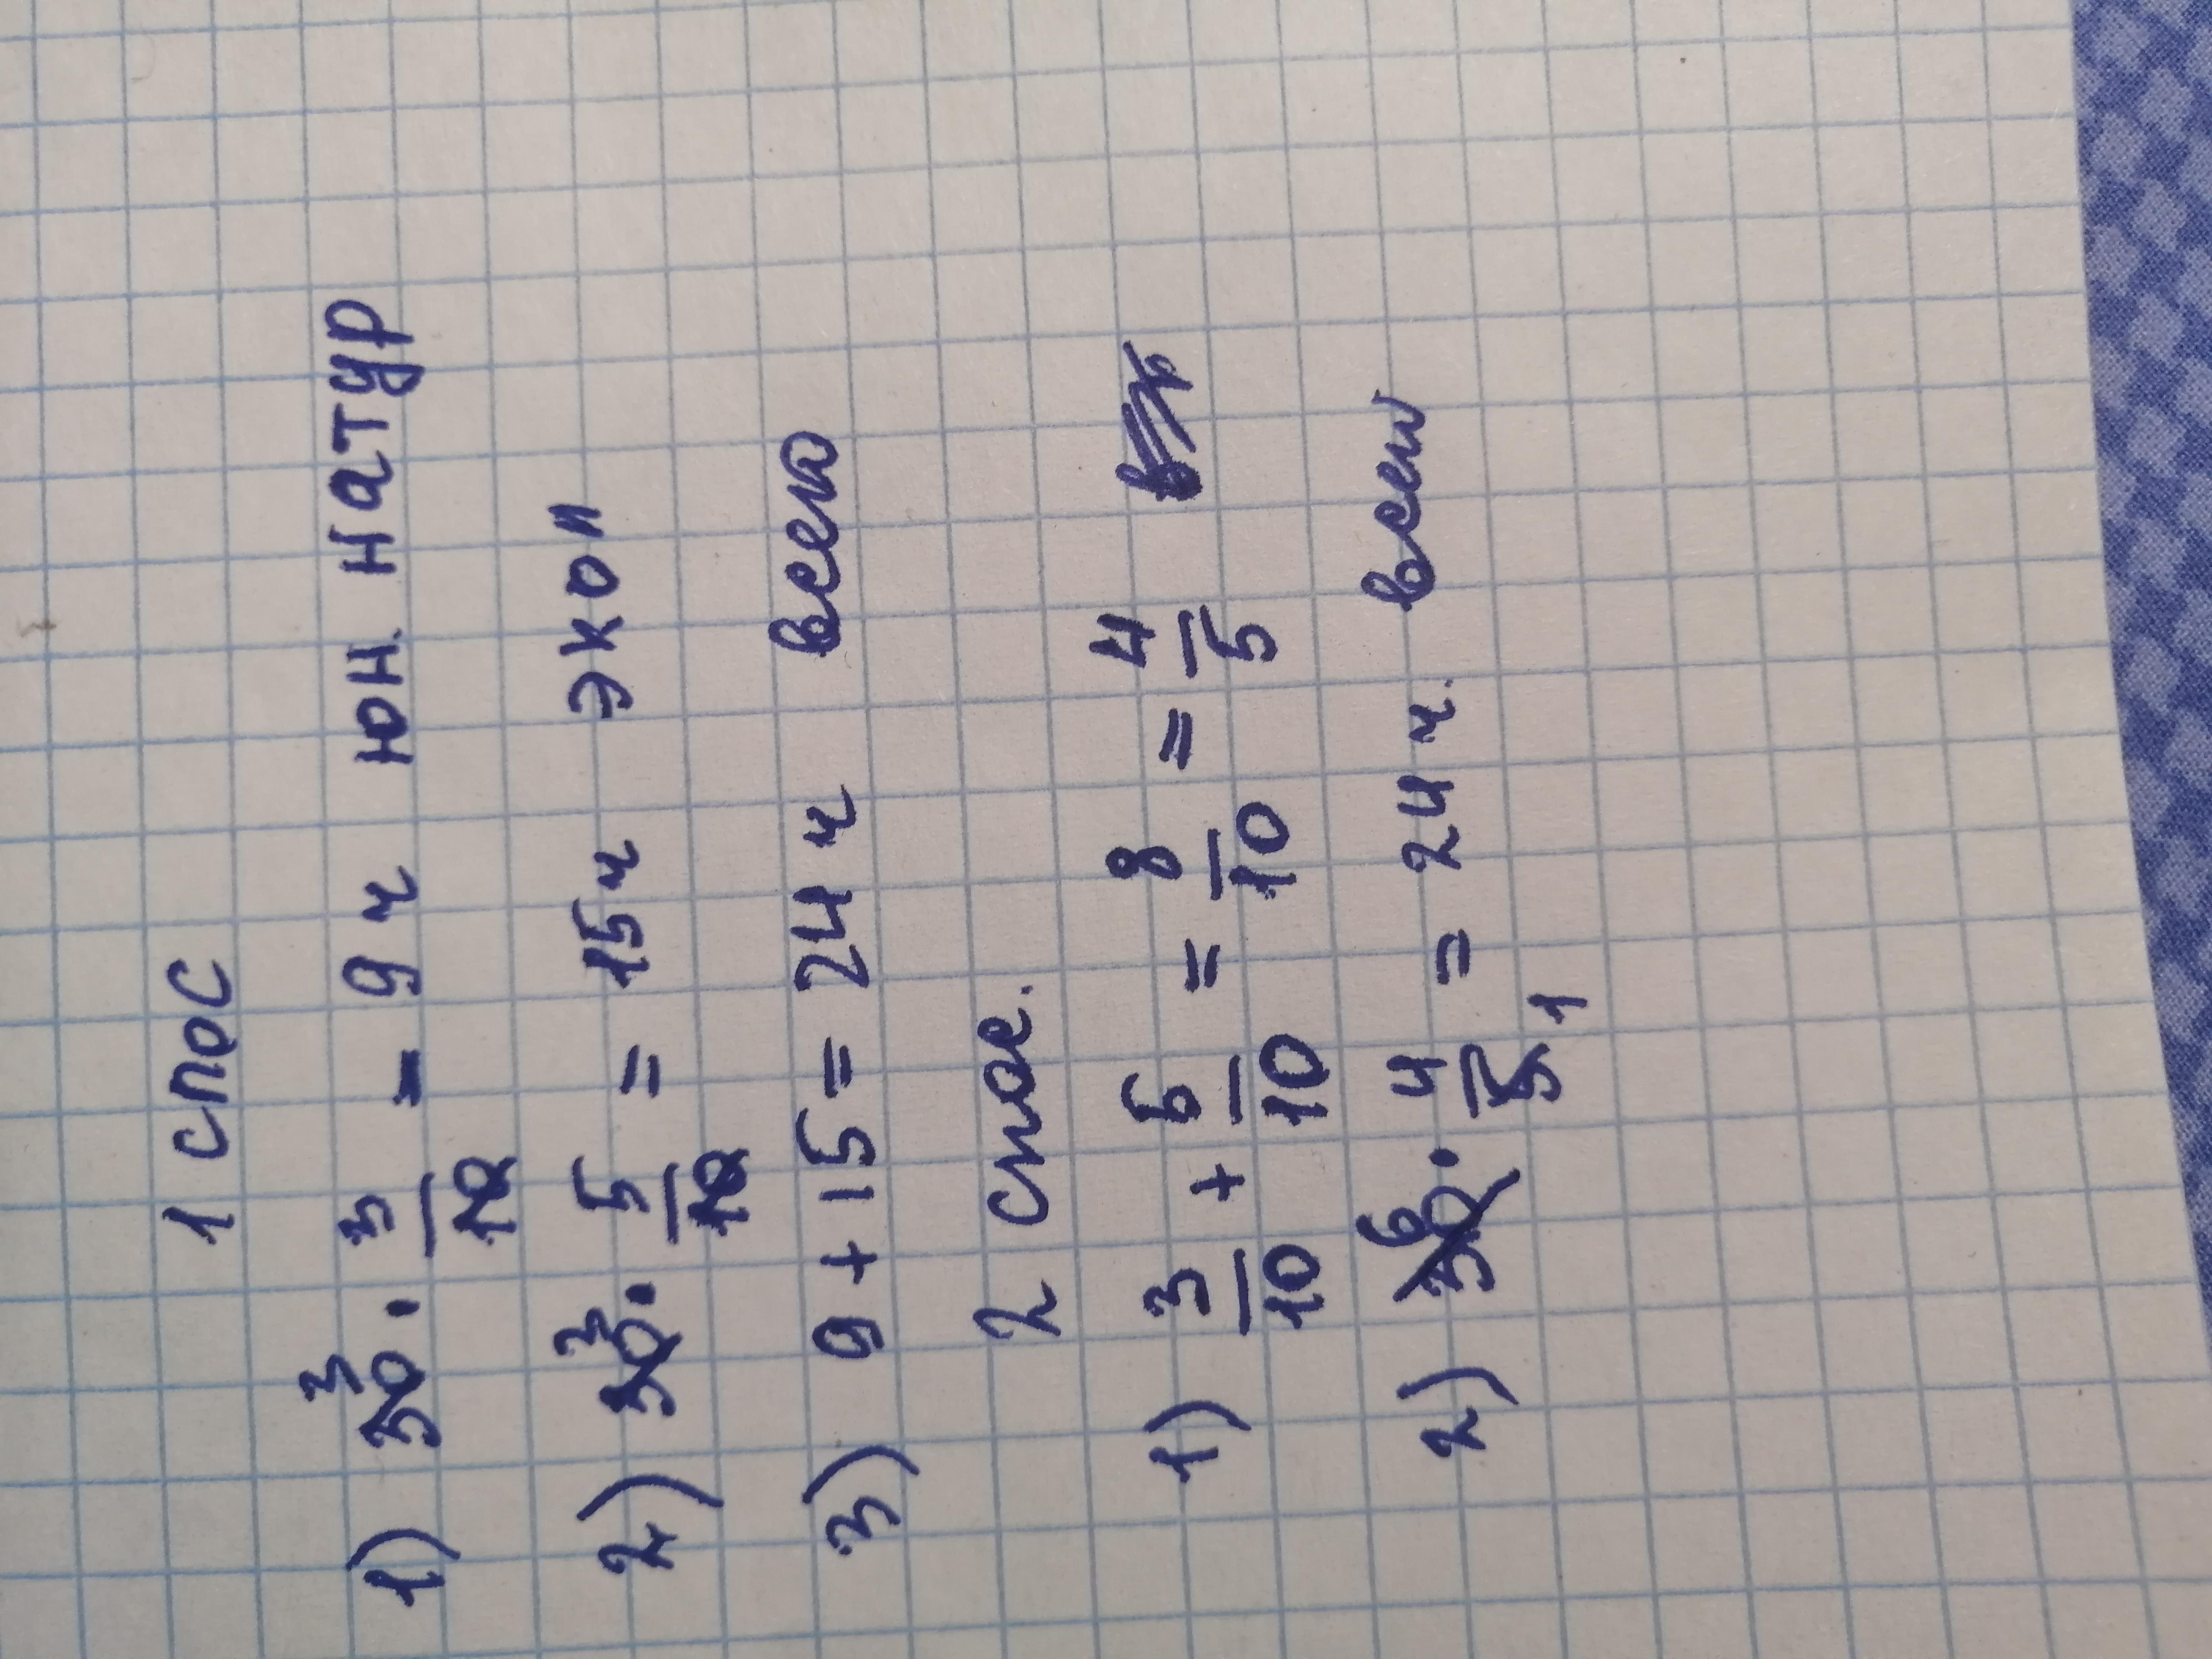 1 спос
1) 30 3 · 3/10 = 9 ч юн. натур
2) 30 3 · 5/10 = 15 ч экол
3) 9 + 15 = 24 ч всего
2 спос.
1) 3/10 + 5/10 = 8/10 = 4/5
2) 30 6 · 4/5 1 = 24 ч. всего